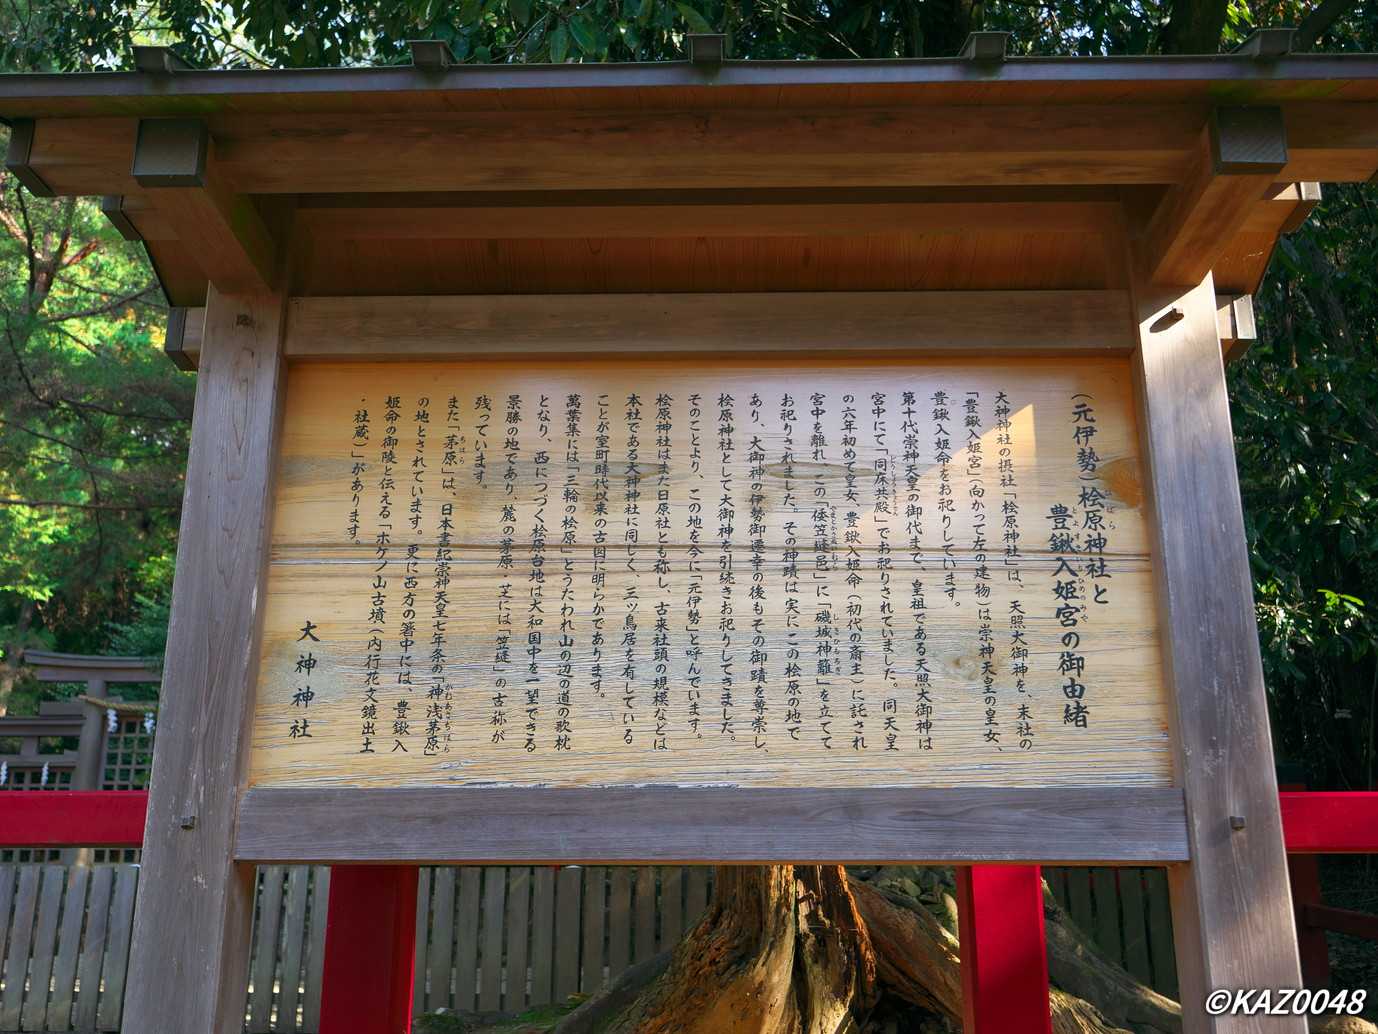 (元伊勢)桧原神社と
豊鍬入姫宮の御由緒
大神神社の摂社「桧原神社」は、天照大御神を、末社の
「豊鍬入姫宮」(向かって左の建物)は崇神天皇の皇女、
豊鍬入姫命をお祀りしています。
第十代崇神天皇の御代まで、皇祖である天照大御神は
宮中にて「同床共殿」でお祀りされていました。同天皇
の六年初めて皇女、豊鍬入姫命(初代の斎主)に託され
宮中を離れ、この「倭笠縫邑」に「磯城神籬」を立てて
お祀りされました。その神蹟は実にこの桧原の地で
あり、大御神の伊勢御遷幸の後もその御蹟を尊崇し、
桧原神社として大御神を引続きお祀りしてきました。
そのことより、この地を今に「元伊勢」と呼んでいます。
桧原神社はまた日原社とも称し、古来社頭の規模などは
本社である大神神社に同じく、三ツ鳥居を有している
ことが室町時代以来の古図に明らかであります。
萬葉集には「三輪の桧原」とうたわれ山の辺の道の歌枕
となり、西につづく桧原台地は大和国中を一望できる
景勝の地であり、麓の茅原・芝には「笠縫」の古称が
残っています。
また「茅原」は、日本書紀崇神天皇七年条の「神浅茅原」
の地とされています。更に西方の箸中には、豊鍬入
姫命の御陵と伝える「ホケノ山古墳(内行花文鏡出土
・社蔵)」があります。
大神神社
©KAZ0048